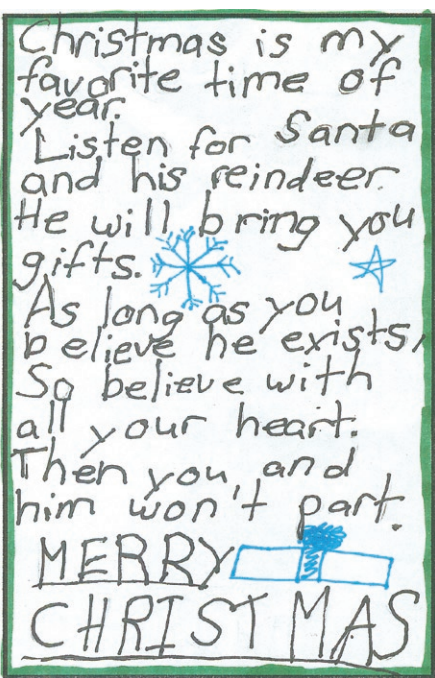 Christmas is my
favorite time of
year.
Listen for Santa
and his reindeer.
He will bring you
gifts.
As long as you
believe he exists,
So believe with
all your heart.
Then you and
him won't part.
MERRY
CHRISTMAS